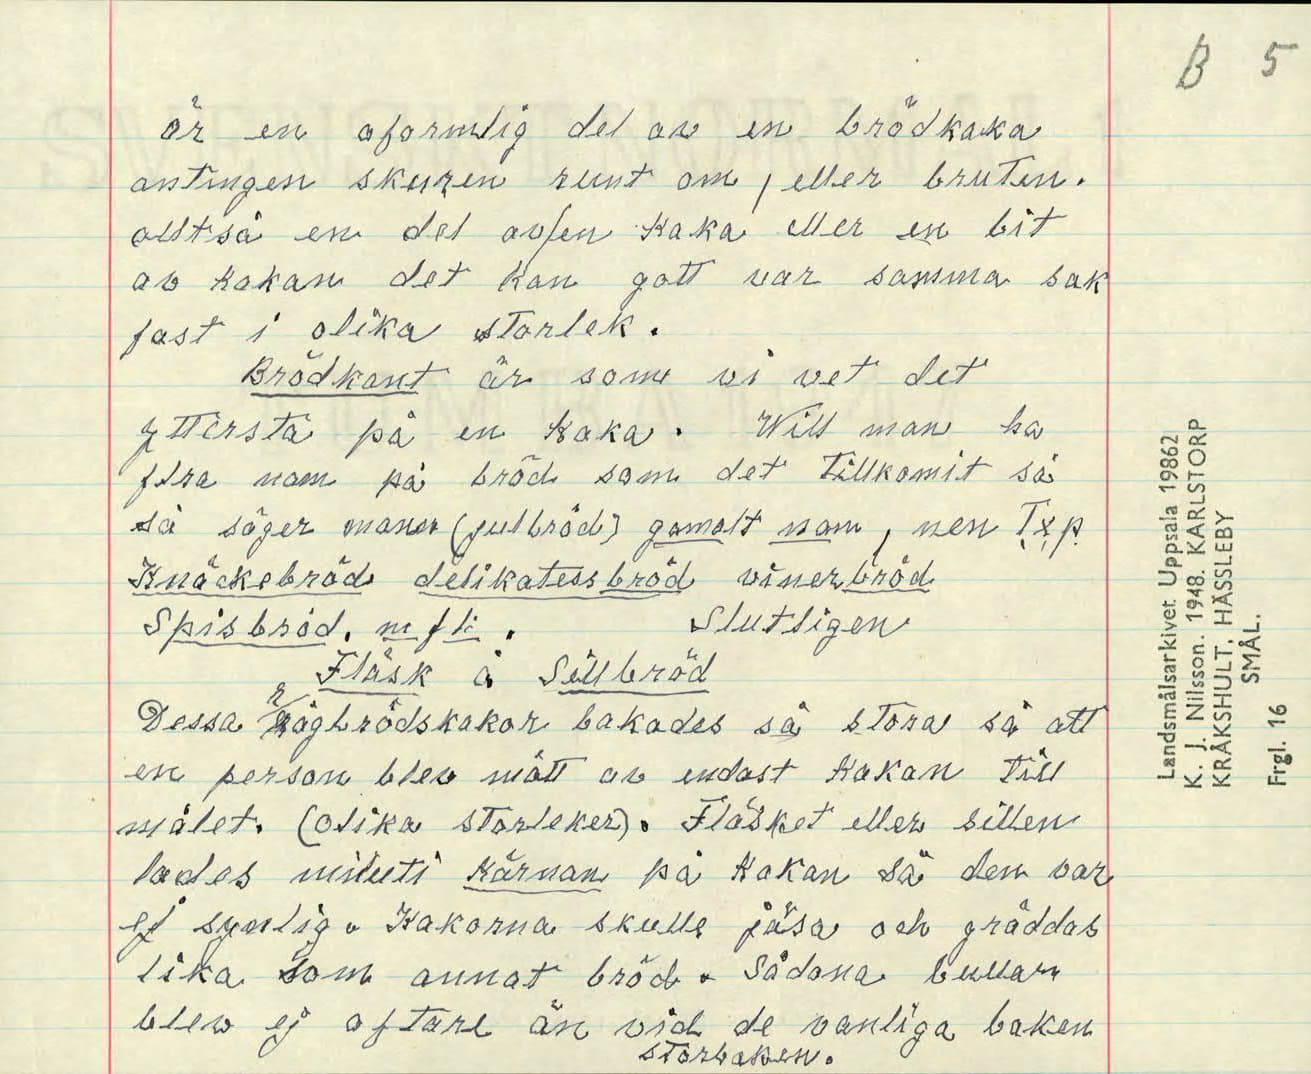 B 5
är en oformlig del av en brödkaka
antingen skuren runt om, eller bruten.
alltså en del av/en kaka eller en bit
av kakan det kan gott var samma sak
fast i olika storlek.
Brödkant är som vi vet det
yttersta på en kaka. Will man ha
flra nam på bröd som det tillkomit så
så säger man (julbröd) gamalt nam, nen T,x,p.
Knäckebröd delikatessbröd vinerbröd
Spisbröd. m fl. Slutligen
Fläsk å Sillbröd
Dessa rågbrödskakor bakades så stora så att
en person blev mätt av endast kakan till
målet. (Olika storleker). Fläsket eller sillen
lades inuti kärnan på kakan så den var
ej synlig. Kakorna skulle jäsa och gräddas
lika som annat bröd. Sådana bullar
blev ej oftare än vid de vanliga baken
storbaken.
Landsmålsarkivet Uppsala 19862
K. J. Nilsson. 1948. KARLSTORP
KRÅKSHULT, HÄSSLEBY
SMÅL.
Frgl. 16